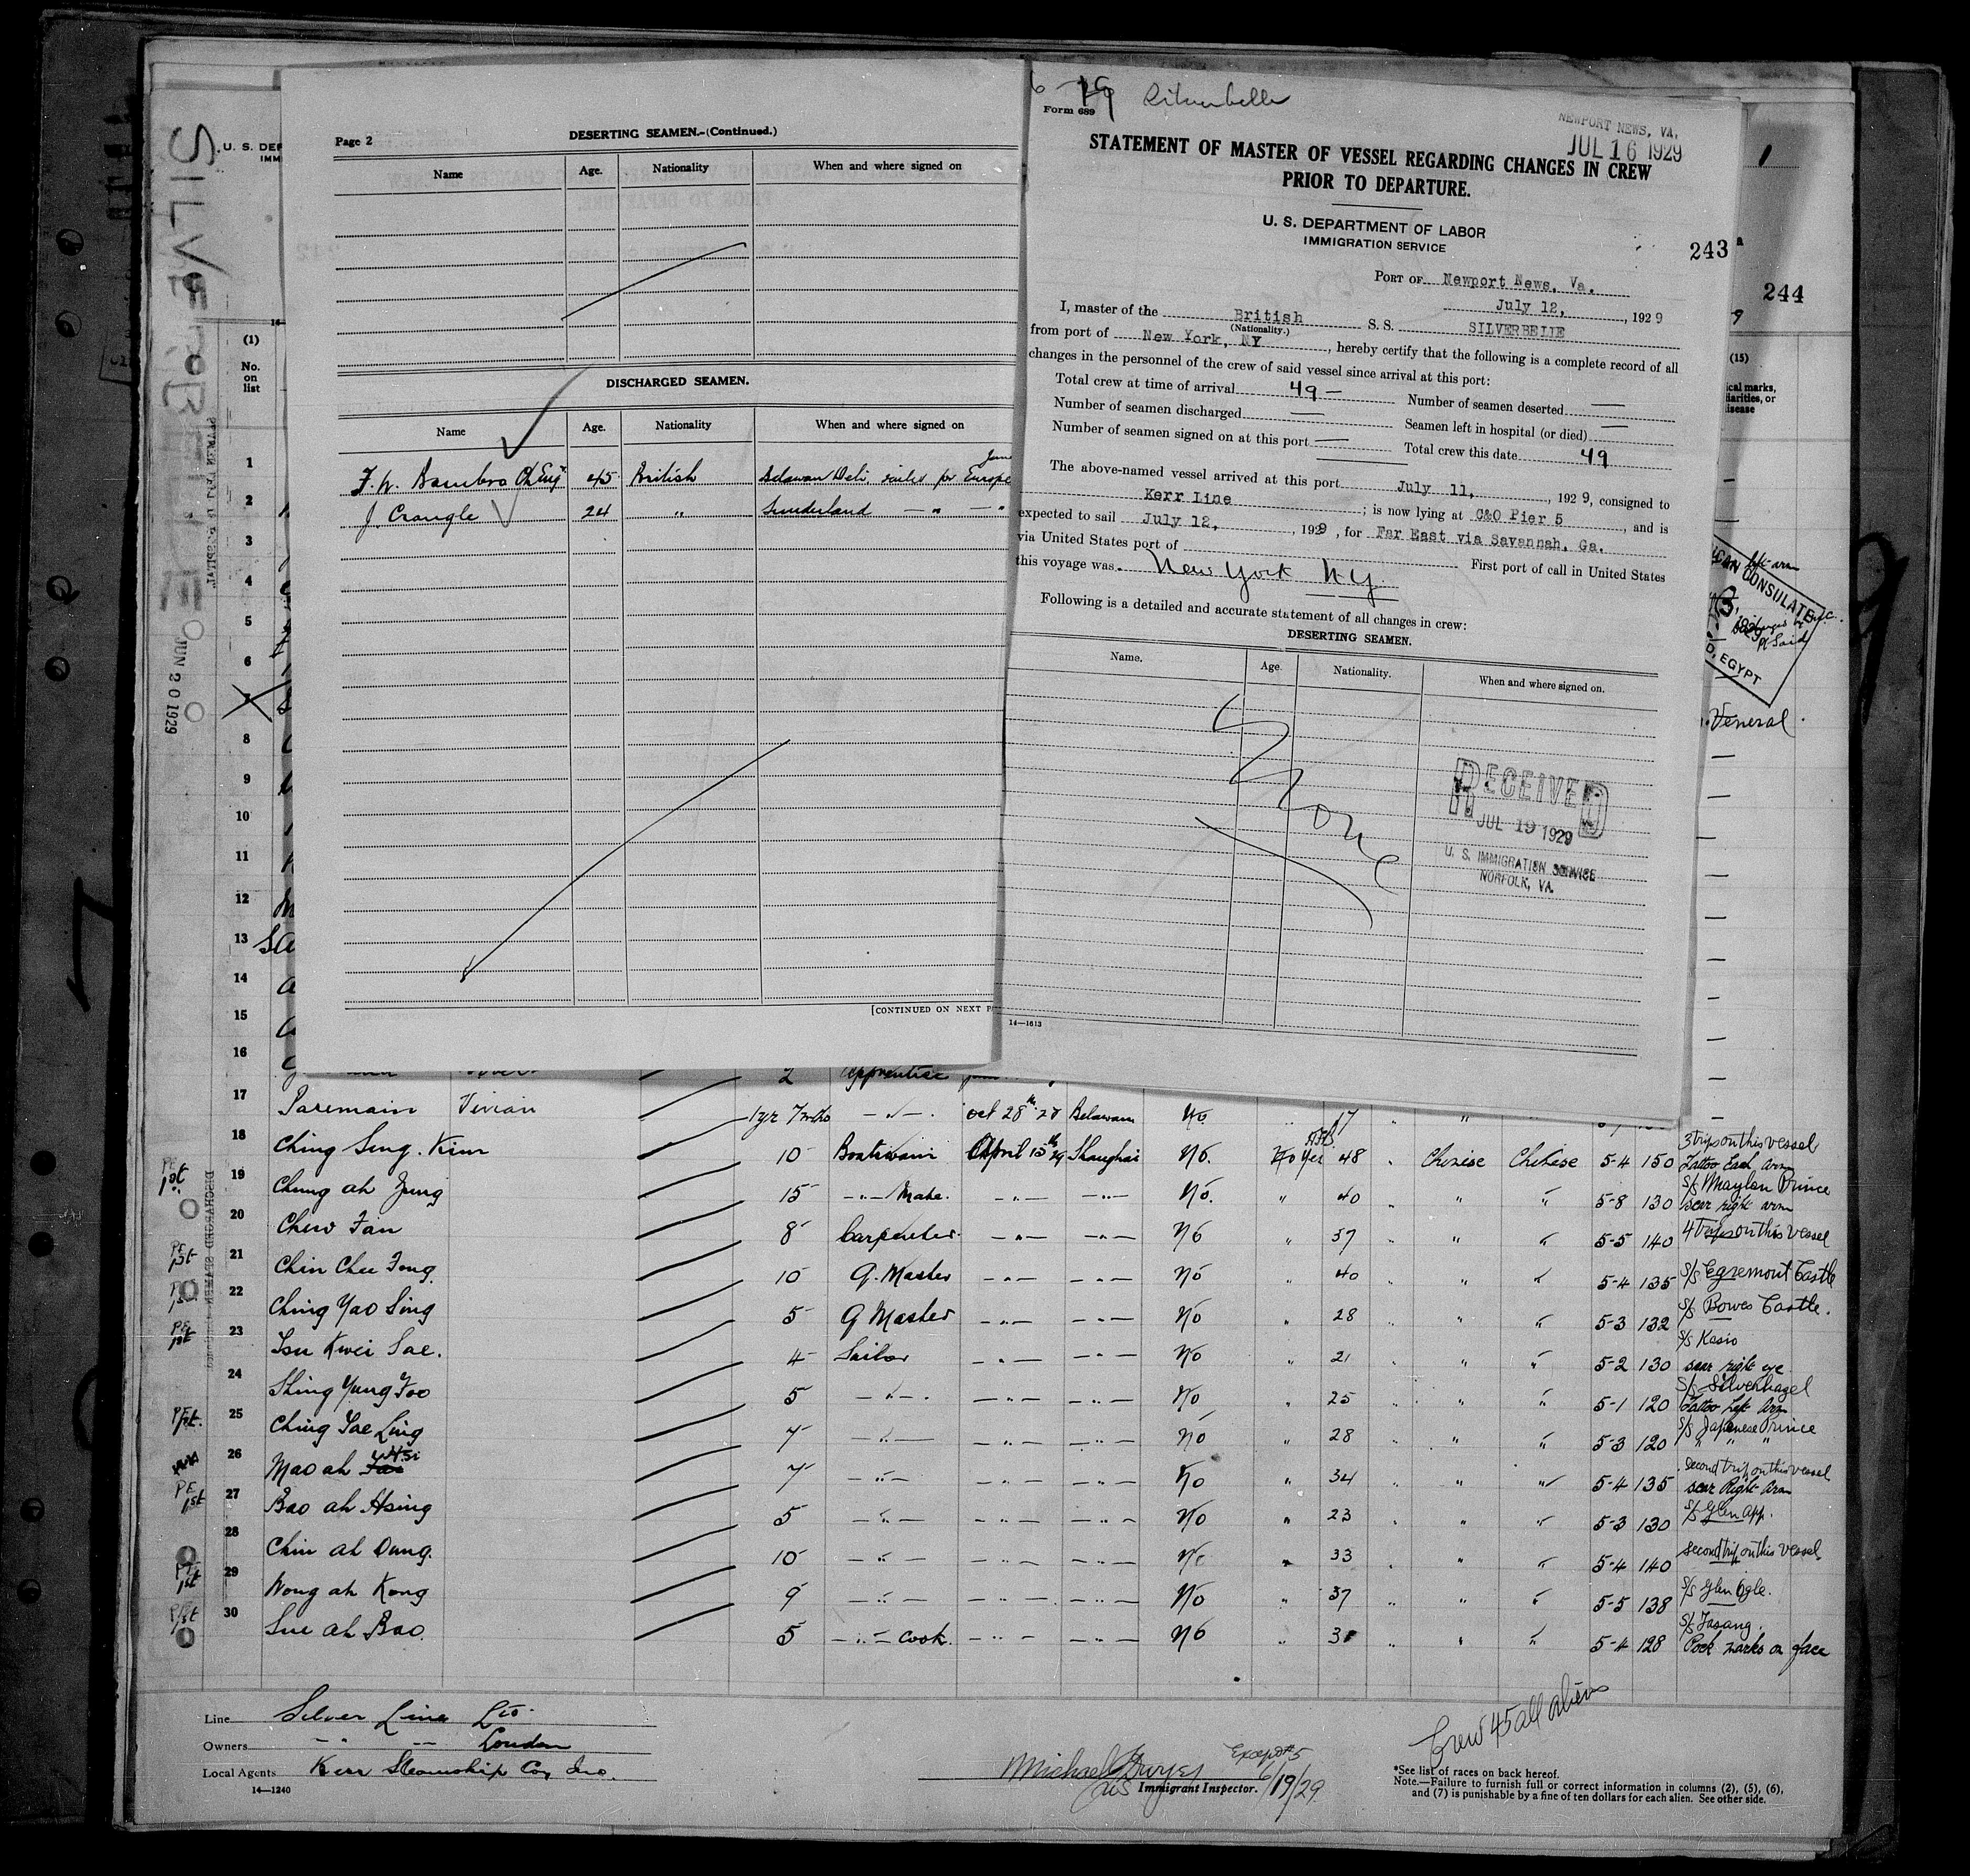 SILVERBELLE
JUN 20 1929
U. S. DEP
IMM
Page 2
DESERTING SEAMEN.-(Continued.)
Name Age. Nationality When and where signed on
DISCHARGED SEAMEN.
Name Age. Nationality When and where signed on
June
F. W. Bambro Ch Eng 45 British Belawan Deli sailed for Europe
J Crangle 24 " Sunderland — " — "
[CONTINUED ON NEXT P
6 - 19 Silverbelle
Form 689
NEWPORT NEWS, VA.
JUL 16 1929
STATEMENT OF MASTER OF VESSEL REGARDING CHANGES IN CREW
PRIOR TO DEPARTURE.
U. S. DEPARTMENT OF LABOR
IMMIGRATION SERVICE
243
PORT OF Newport News, Va.
July 12, , 192 9
I, master of the British S. S. SILVERBELLE
(Nationality.)
from port of New York, NY , hereby certify that the following is a complete record of all
changes in the personnel of the crew of said vessel since arrival at this port:
Total crew at time of arrival 49 — Number of seamen deserted —
Number of seamen discharged — Seamen left in hospital (or died) —
Number of seamen signed on at this port — Total crew this date 49
The above-named vessel arrived at this port July 11, , 192 9, consigned to
Kerr Line ; is now lying at C&O Pier 5 , and is
expected to sail July 12, , 1929 , for Far East via Savannah, Ga.
via United States port of First port of call in United States
this voyage was New York NY
Following is a detailed and accurate statement of all changes in crew:
DESERTING SEAMEN.
Name. Age. Nationality. When and where signed on.
None
RECEIVED
JUL 19 1929
U. S. IMMIGRATION SERVICE
NORFOLK, VA.
14—1613
1
244
9
(15)
ical marks,
liarities, or
disease
left arm
ICAN CONSULATE
Pt Said
D, EGYPT
Veneral
(1)
No.
on
list
1
2
3
4
5
6
7
8
9
10
11
12
13
14
15
16 2 Apprentice
17 Paremain Vivian 1yr 7mths — " — Oct 28th 27 Belawan No. 17
18 Ching Sing. Kim 10 Boatswain April 15th 29 Shanghai No. No Yes 48 " Chinese Chinese 5-4 150 3 trips on this vessel Tattoo Each Arm
19 Chung ah Jung 15 — " — Mate. — " — — " — No. " 40 " " " 5-8 130 S/S Maylan Prince scar right arm
20 Chew Fan 8 Carpenter. — " — — " — No " 37 " " " 5-5 140 4 trips on this vessel
21 Chin Chee Fong. 10 Q. Master — " — — " — No " 40 " " " 5-4 135 S/S Egremont Castle
22 Ching Yao Sing 5 Q Master — " — — " — No " 28 " " " 5-3 132 S/S Bowes Castle.
23 Tsu Kwei Sae. 4 Sailor — " — — " — No " 21 " " " 5-2 130 S/S Kasio scar right eye
24 Shing Yung Foo 5 — " — — " — — " — No " 25 " " " 5-1 120 S/S Silverhazel Tattoo Left Arm
25 Ching Sae Ling 7 — " — — " — — " — No " 28 " " " 5-3 120 S/S Japanese Prince " " "
26 Mao ah Hsi 7 — " — — " — — " — No " 34 " " " 5-4 135 second trip on this vessel scar Right Arm
27 Bao ah Hsing 5 — " — — " — — " — No " 23 " " " 5-3 130 S/S Glen app.
28 Chin ah Dung. 10 — " — — " — — " — No " 33 " " " 5-4 140 second trip on this vessel
29 Wong ah Kong 9 — " — — " — — " — No " 37 " " " 5-5 138 S/S Glen Ogle.
30 Sue ah Bao. 5 — " — cook. — " — — " — No " 31 " " " 5-4 128 S/S Fasang. Pock marks on face
Crew 45 all aliens
Line Silver Line Ltd.
Owners — " — London
Local Agents Kerr Steamship Co, Inc.
14—1240
Michael Dwyer
Except #5
Immigrant Inspector. 6/19/29
*See list of races on back hereof.
Note.—Failure to furnish full or correct information in columns (2), (5), (6),
and (7) is punishable by a fine of ten dollars for each alien. See other side.